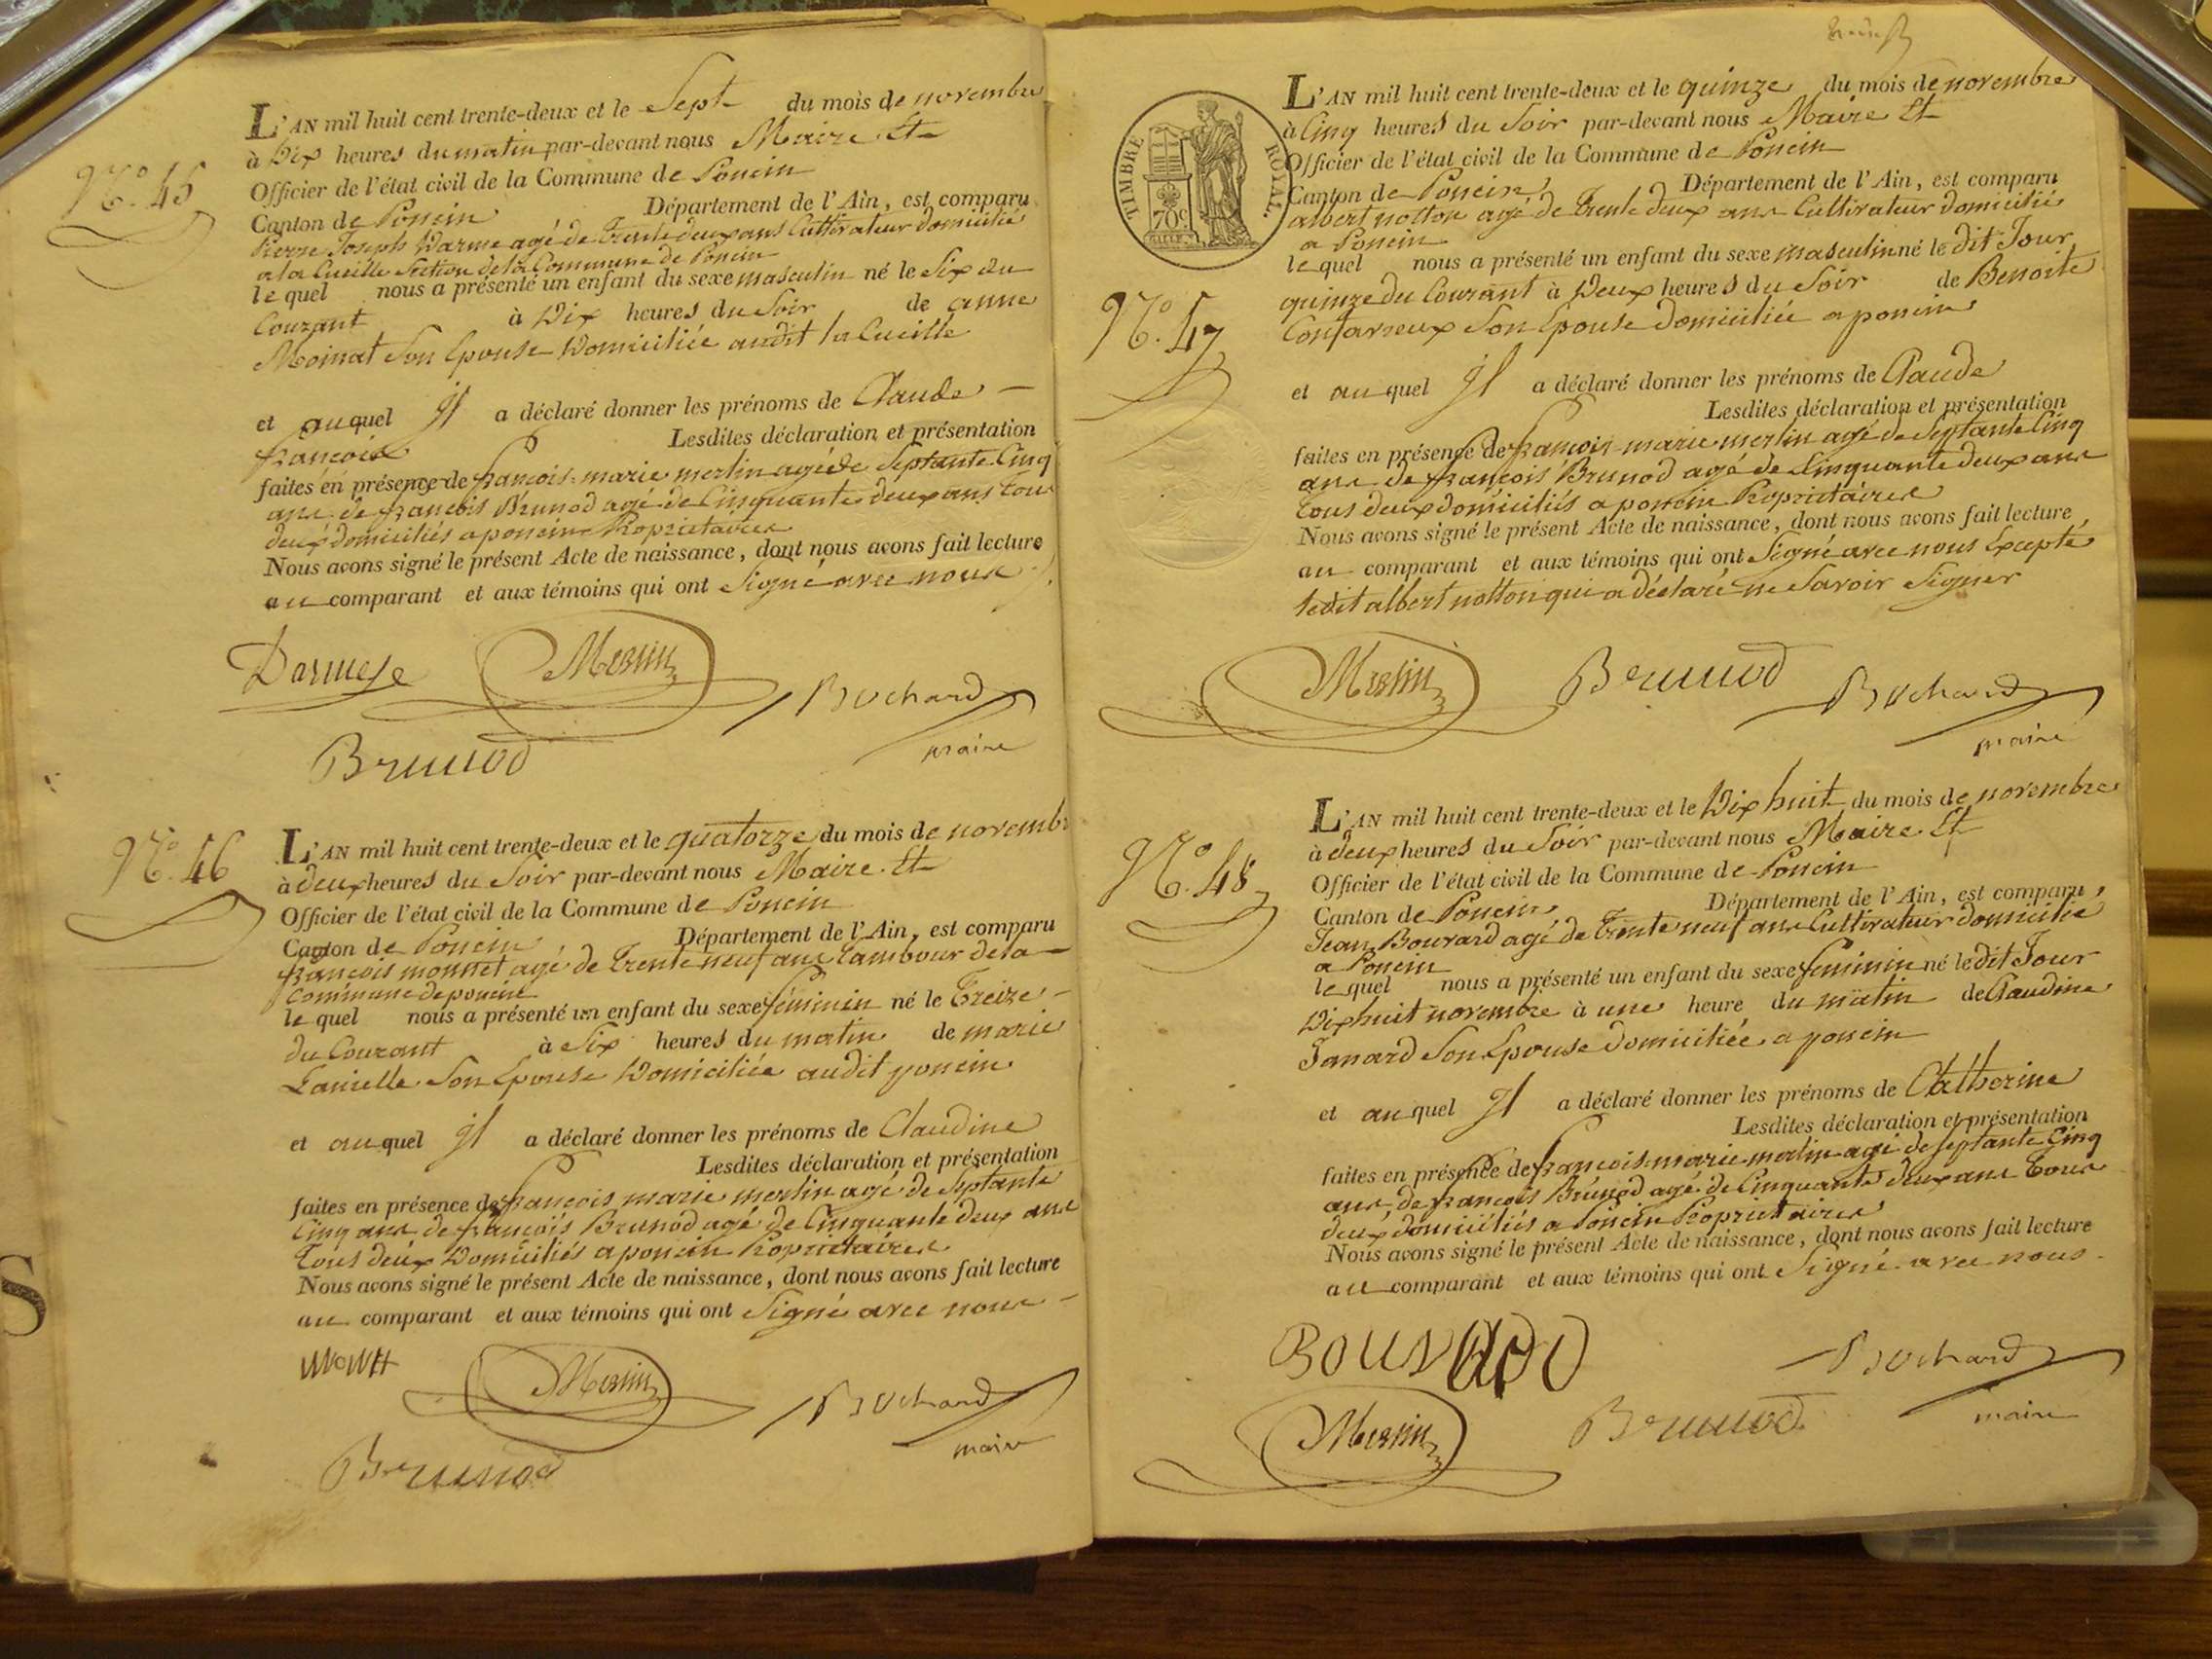 N.° 45
L'AN mil huit cent trente-deux et le Sept du mois de novembre
à Dix heures du matin par-devant nous Maire Et
Officier de l'état civil de la Commune de Poncin
Canton de Poncin Département de l'Ain, est comparu
Pierre Joseph Darme agé de Trente deux ans Cultivateur domicilié
a la Cueille Section de la Commune de Poncin
le quel nous a présenté un enfant du sexe masculin né le Six du
Courant à Dix heures du Soir de anne
Moinat Son Epouse Domiciliée audit la Cueille
et au quel Il a déclaré donner les prénoms de Claude
françois Lesdites déclaration et présentation
faites en présence de françois marie merlin agé de Septante Cinq
ans de françois Brunod agé de Cinquante deux ans tous
deux domiciliés a poncin Proprietaires
Nous avons signé le présent Acte de naissance, dont nous avons fait lecture
au comparant et aux témoins qui ont Signé avec nous
Merlin
Bochard
maire
Brunod
N.° 46
L'AN mil huit cent trente-deux et le quatorze du mois de novembr
à deux heures du Soir par-devant nous Maire Et
Officier de l'état civil de la Commune de Poncin
Canton de Poncin Département de l'Ain, est comparu
françois monnet agé de Trente neuf ans Tambour de la
Commune de poncin
le quel nous a présenté un enfant du sexe féminin né le Treize
du Courant à Six heures du matin de marie
Son Epouse Domiciliée audit poncin
et au quel Il a déclaré donner les prénoms de Claudine
Lesdites déclaration et présentation
faites en présence de françois marie merlin agé de Septante
Cinq ans de françois Brunod agé de Cinquante deux ans
Tous deux Domiciliés a poncin Proprietaires
Nous avons signé le présent Acte de naissance, dont nous avons fait lecture
au comparant et aux témoins qui ont Signé avec nous
Merlin
Bochard
maire
Brunod
TIMBRE ROYAL
70 c.
N.° 47
L'AN mil huit cent trente-deux et le quinze du mois de novembre
à Cinq heures du Soir par-devant nous Maire Et
Officier de l'état civil de la Commune de Poncin
Canton de Poncin Département de l'Ain, est comparu
albert notton agé de Trente deux ans Cultivateur domicilié
a Poncin
le quel nous a présenté un enfant du sexe masculin né le dit Jour
quinze du Courant à Deux heures du Soir de Benoite
Son Epouse domiciliée a poncin
et au quel Il a déclaré donner les prénoms de Claude
Lesdites déclaration et présentation
faites en présence de françois marie merlin agé de Septante Cinq
ans de françois Brunod agé de Cinquante deux ans
tous deux domiciliés a poncin Proprietaires
Nous avons signé le présent Acte de naissance, dont nous avons fait lecture
au comparant et aux témoins qui ont Signé avec nous Excepté
ledit albert notton qui a déclaré ne Savoir Signer
Merlin
Brunod
Bochard
maire
N.° 48
L'AN mil huit cent trente-deux et le Dix huit du mois de novembre
à deux heures du Soir par-devant nous Maire Et
Officier de l'état civil de la Commune de Poncin
Canton de Poncin Département de l'Ain, est comparu
Jean Bouvard agé de Trente neuf ans Cultivateur domicilié
a Poncin
le quel nous a présenté un enfant du sexe feminin né le dit Jour
Dix huit novembre à une heure du matin de Claudine
Janard Son Epouse domiciliée a poncin
et au quel Il a déclaré donner les prénoms de Catherine
Lesdites déclaration et présentation
faites en présence de françois marie merlin agé de Septante Cinq
ans de françois Brunod agé de Cinquante deux ans Tous
deux domiciliés a Poncin Proprietaires
Nous avons signé le présent Acte de naissance, dont nous avons fait lecture
au comparant et aux témoins qui ont Signé avec nous
Bochard
maire
Merlin
Brunod